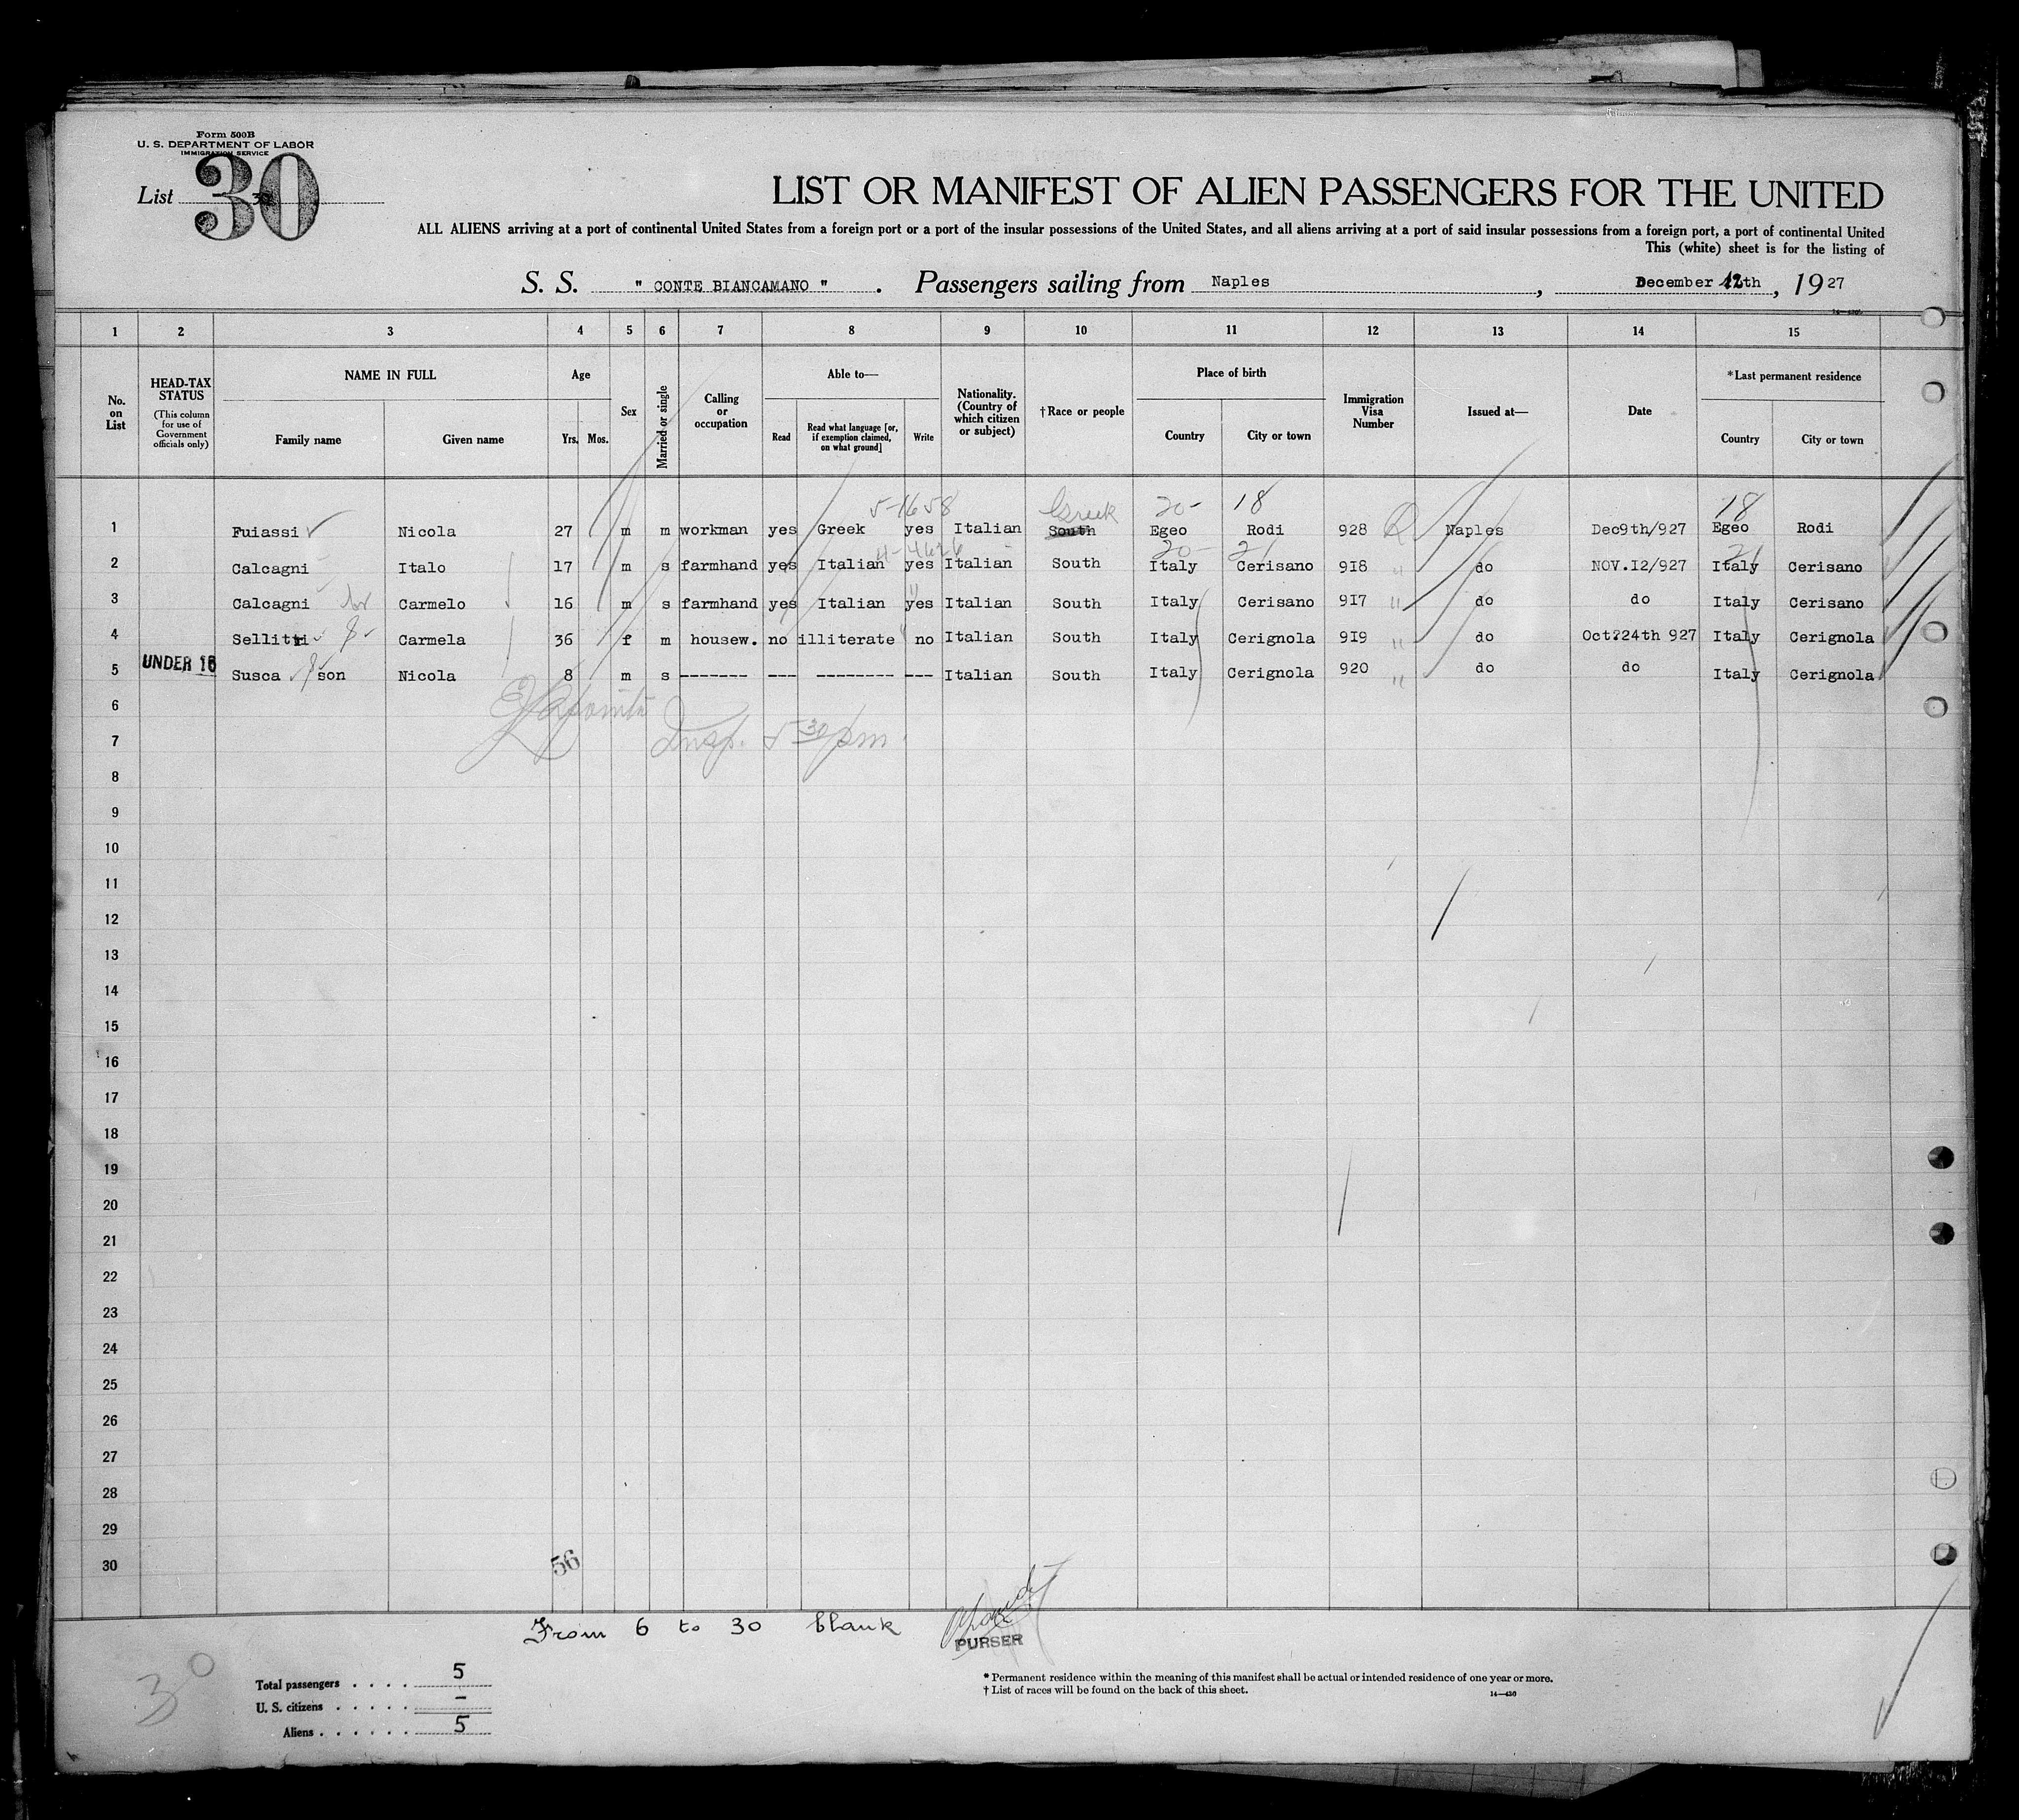 Form 500B
U. S. DEPARTMENT OF LABOR
IMMIGRATION SERVICE
List 30
30
LIST OR MANIFEST OF ALIEN PASSENGERS FOR THE UNITED
ALL ALIENS arriving at a port of continental United States from a foreign port or a port of the insular possessions of the United States, and all aliens arriving at a port of said insular possessions from a foreign port, a port of continental United
This (white) sheet is for the listing of
S. S. " CONTE BIANCAMANO " . Passengers sailing from Naples , December 12th , 1927
1 2 3 4 5 6 7 8 9 10 11 12 13 14 15
No. on List
HEAD-TAX STATUS
(This column for use of Government officials only)
NAME IN FULL
Family name Given name
Age
Yrs. Mos.
Sex
Married or single
Calling or occupation
Able to—
Read Read what language [or, if exemption claimed, on what ground] Write
Nationality. (Country of which citizen or subject)
†Race or people
Place of birth
Country City or town
Immigration Visa Number
Issued at—
Date
*Last permanent residence
Country City or town
5-1658 Greek 20- 18 18
1 Fuiassi Nicola 27 m m workman yes Greek yes Italian South Egeo Rodi 928 Q Naples Dec9th/927 Egeo Rodi
4-4626 20- 21 21
2 Calcagni Italo 17 m s farmhand yes Italian yes Italian South Italy Cerisano 918 " do NOV.I2/927 Italy Cerisano
3 Calcagni br Carmelo 16 m s farmhand yes Italian yes Italian South Italy Cerisano 917 " do do Italy Cerisano
4 Sellitti Carmela 36 f m housew. no illiterate no Italian South Italy Cerignola 919 " do Oct?24th 927 Italy Cerignola
UNDER 16
5 Susca son Nicola 8 m s ------- --- -------- --- Italian South Italy Cerignola 920 " do do Italy Cerignola
6
Insp. 5 30 pm.
7
8
9
10
11
12
13
14
15
16
17
18
19
20
21
22
23
24
25
26
27
28
29
30
56
From 6 to 30 blank
PURSER
30
Total passengers . . . . 5
U. S. citizens . . . . . -
Aliens . . . . . . 5
* Permanent residence within the meaning of this manifest shall be actual or intended residence of one year or more.
† List of races will be found on the back of this sheet.
14—436